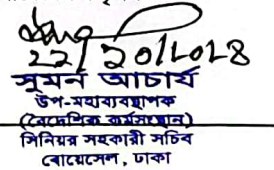 ২২/১০/২০২৪
সুমন আচার্য
উপ-মহাব্যবস্থাপক
(বৈদেশিক কর্মসংস্থান)
সিনিয়র সহকারী সচিব
বোয়েসেল, ঢাকা